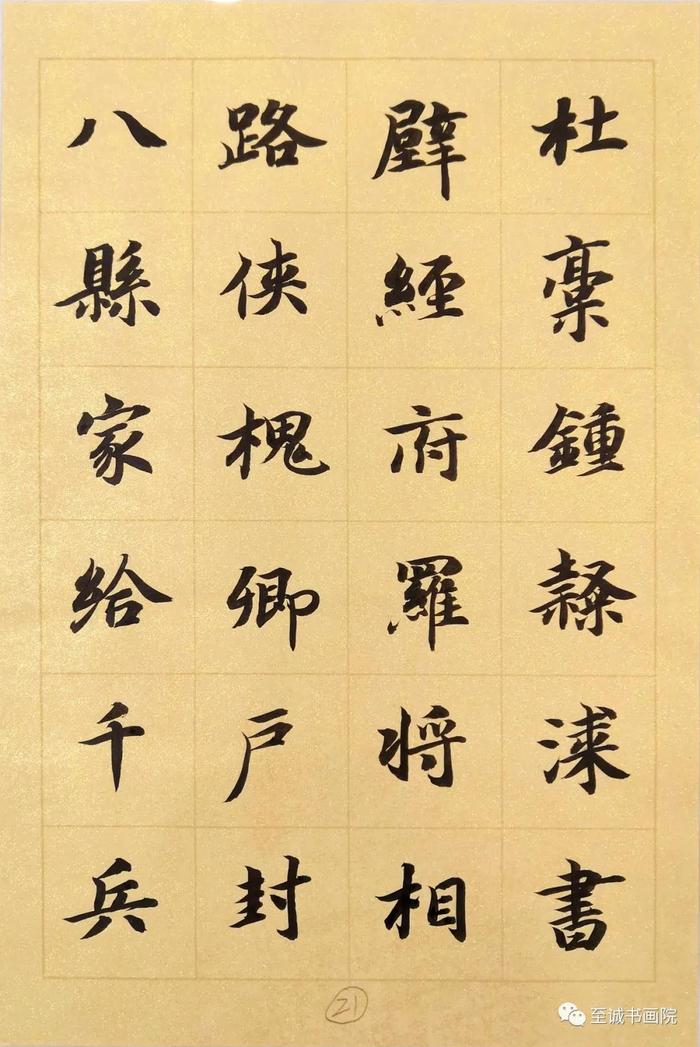 杜稾鍾隸漆書
壁經府羅将相
路俠槐卿户封
八縣家給千兵
21
至诚书画院